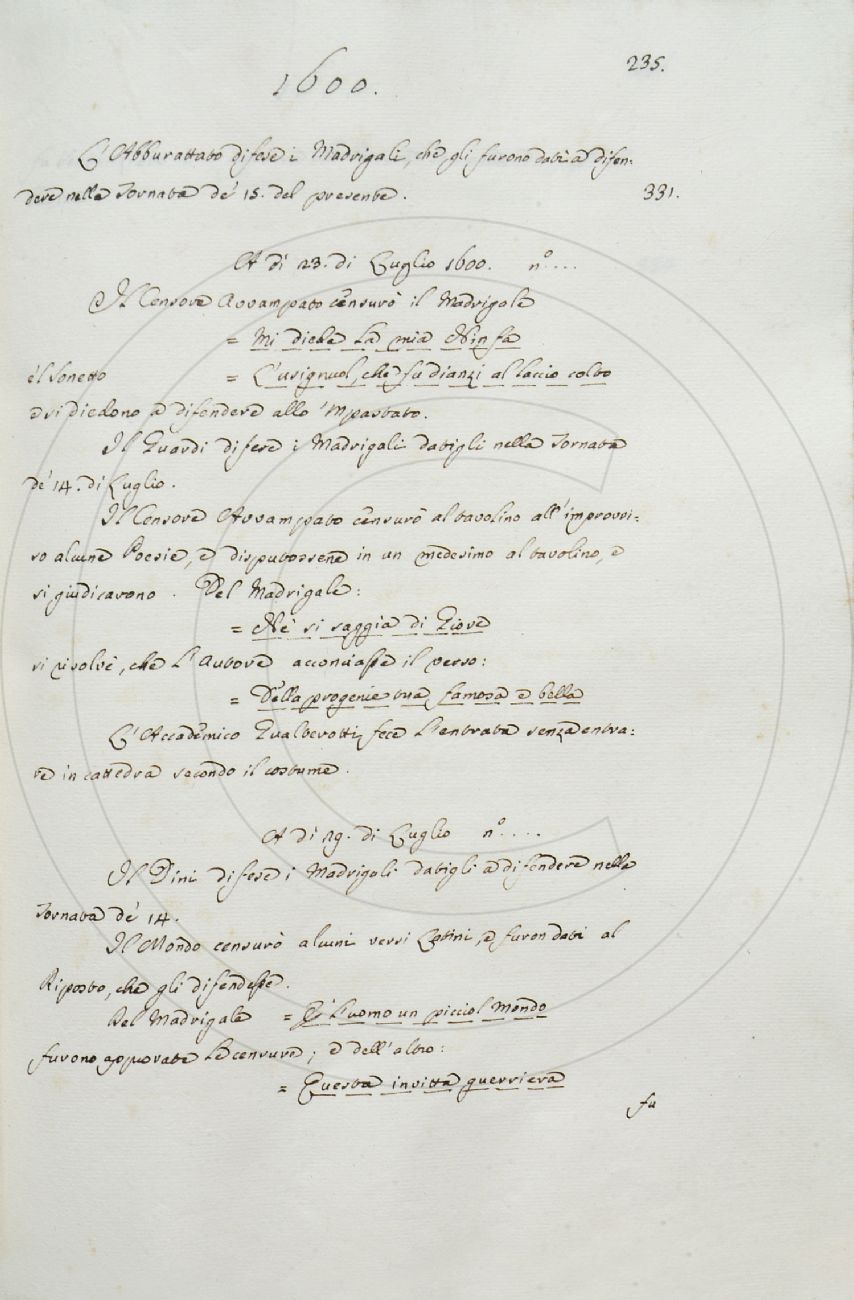 235.
1600.
L'Abburattato difese i Madrigali, che gli furono dati a difen=
dere nella Tornata de' 15. del presente. 331.
A dì 23. di Luglio 1600. n.º ...
Il Censore Avvampato censurò il Madrigale
= Mi diede la mia Ninfa
e 'l Sonetto = L'usignuol, che fu dianzi al laccio colto
e si diedono a difendere allo 'Mpastato.
Il Guardi difese i Madrigali datigli nella Tornata
de' 14. di Luglio.
Il Censore Avvampato censurò al tavolino all'improvvi=
so alcune Poesie, e disputossene in un medesimo al tavolino, e
si giudicavono. Del Madrigale:
= Nè si saggia di Giove
si risolvè, che l'Autore acconciasse il verso:
= Della progenie tua famosa e bella
L'Accademico Gualterotti fece l'entrata senza entra=
re in cattedra secondo il costume.
A dì 29. di Luglio n.º ....
Il Dini difese i Madrigali datigli a difendere nella
Tornata de' 14.
Il Mondo censurò alcuni versi Latini, e furon dati al
Riposto, che gli difendesse.
Del Madrigale = È l'uomo un picciol Mondo
furono approvate le censure; e dell'altro:
= Questa invitta guerriera
fu